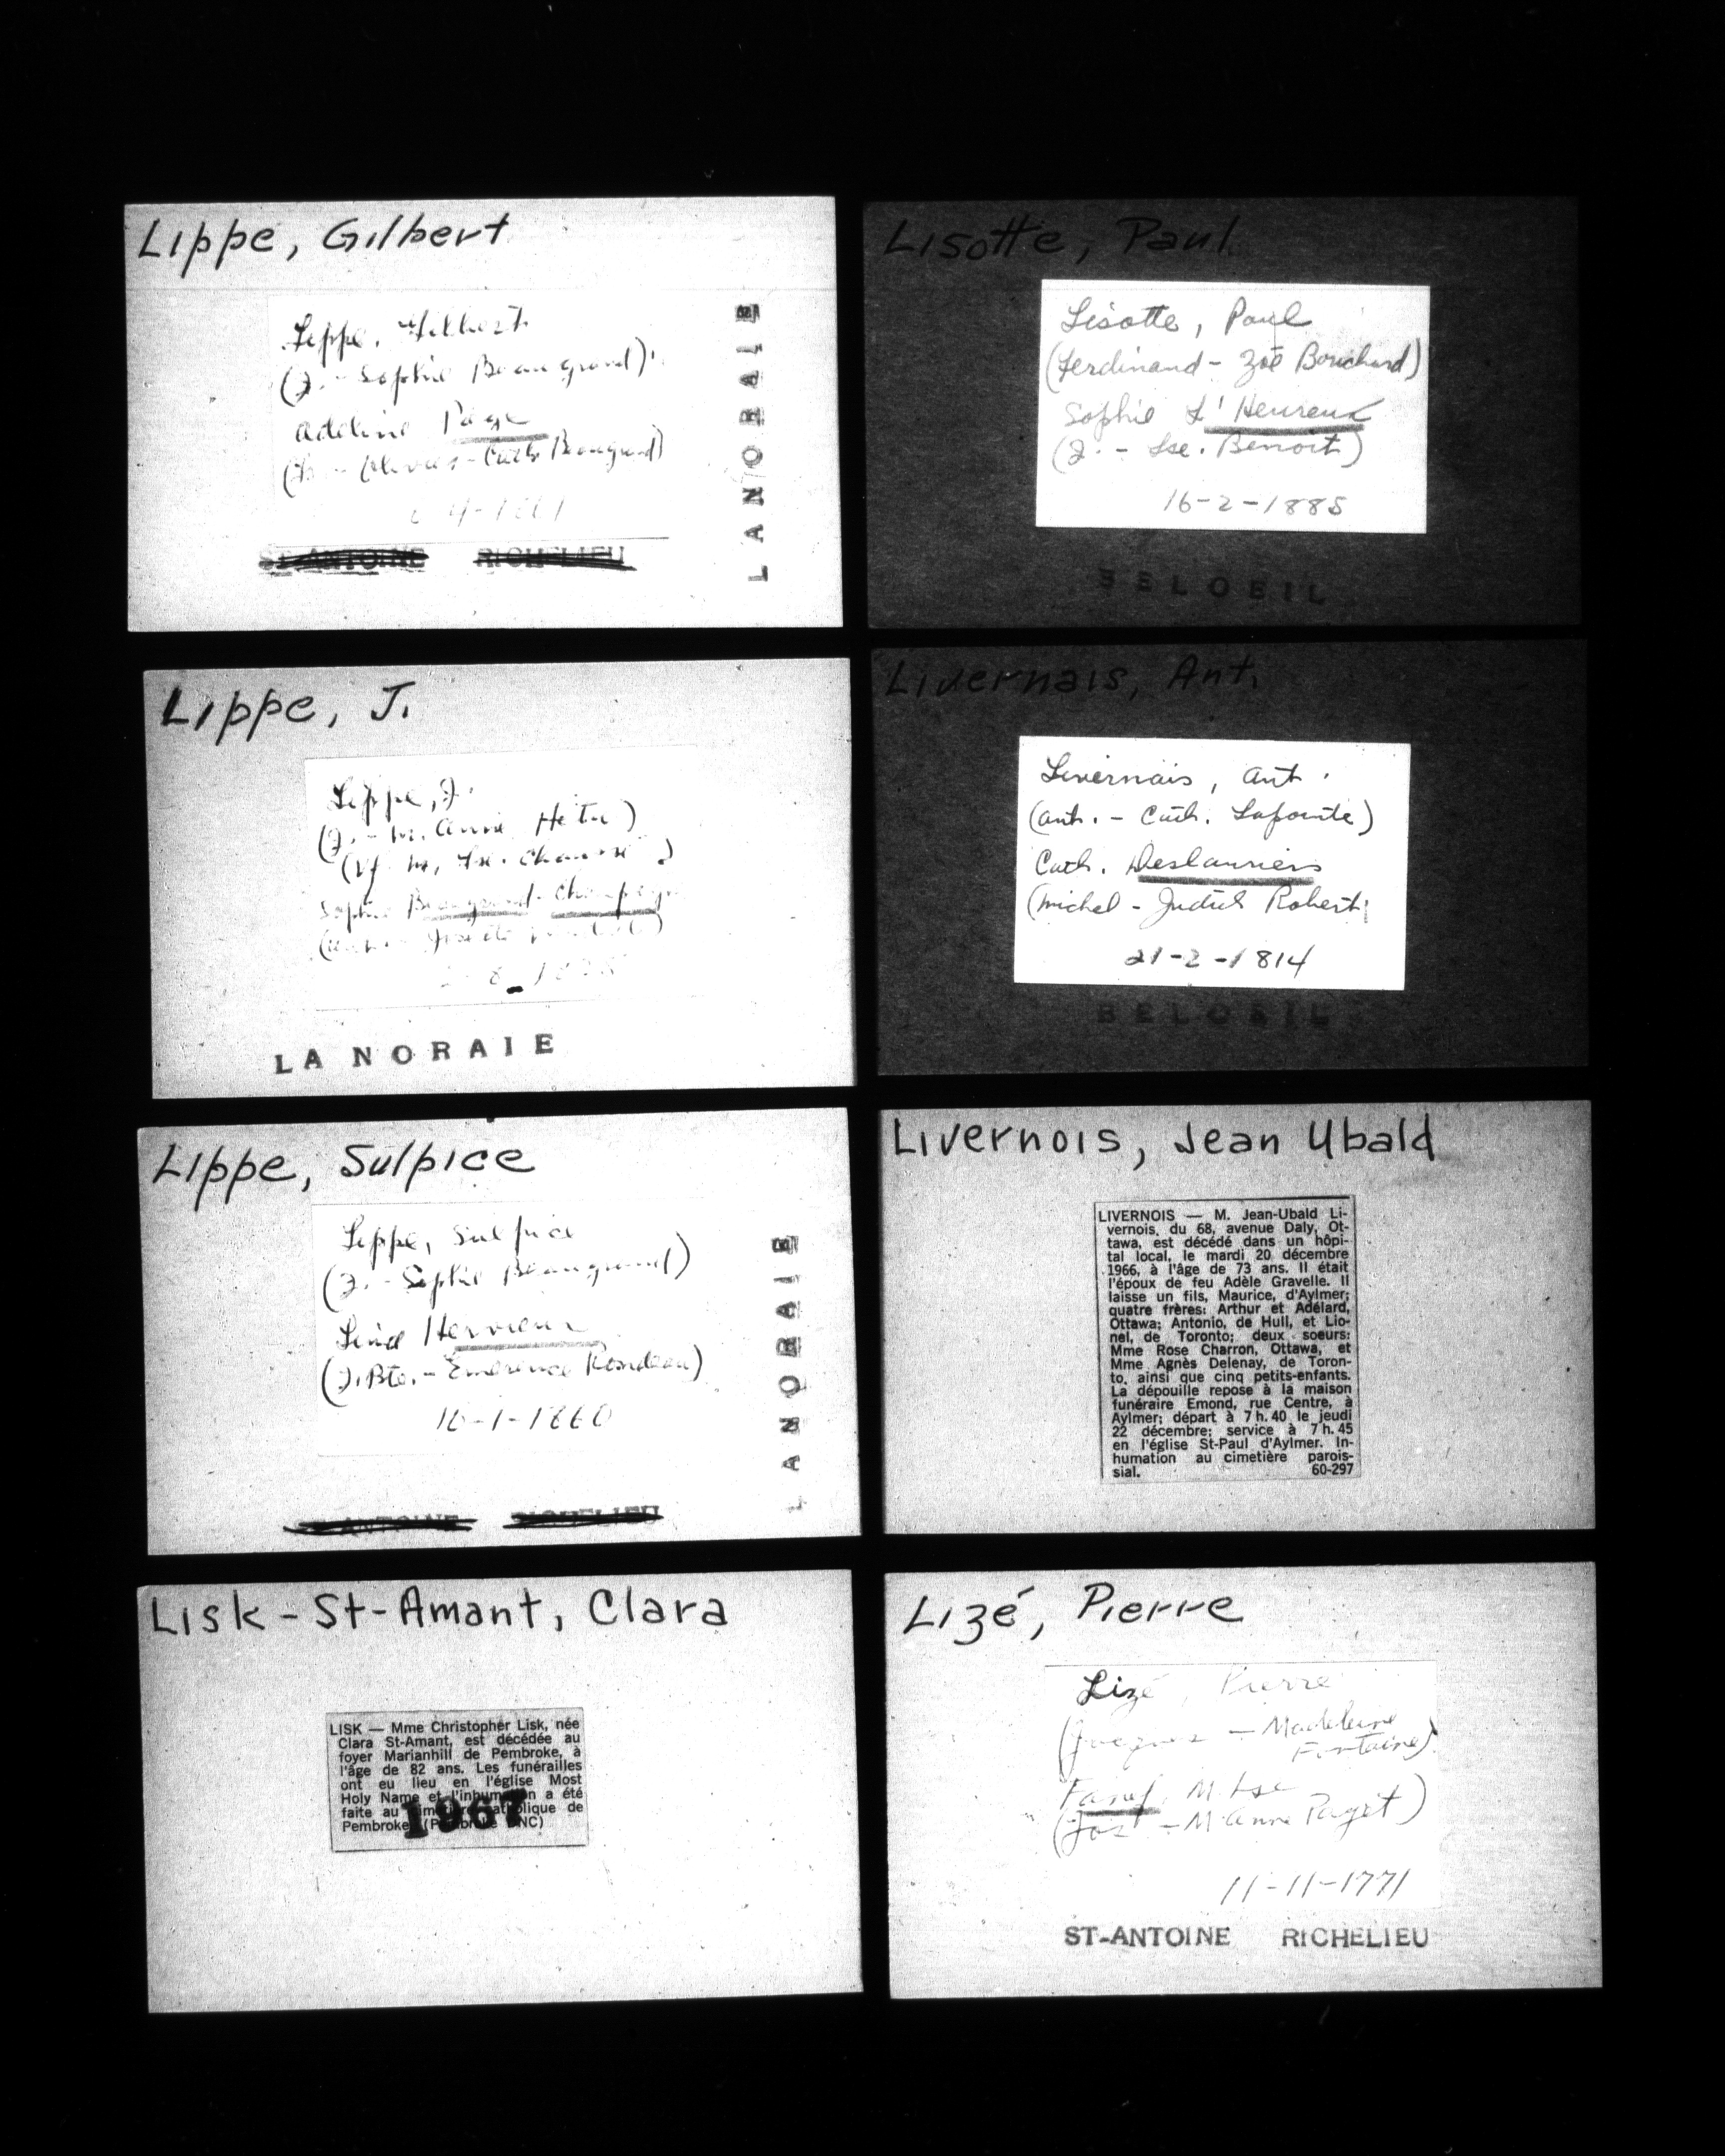 Lippe, Gilbert
Lippe, Gilbert
(J. - Sophie Beaugrand)
Adeline Page
(Beaugrand)
ST-ANTOINE RICHELIEU
LANORAIE
Lippe, J.
Lippe, J.
(J. - M. Anne Hetu)
(Vf M. Lse.
Sophie Beaugrand - Champagne
LANORAIE
Lippe, Sulpice
Lippe, Sulpice
(J. - Sophie Beaugrand)
Hervieux
(J. Bte. - Emérence Rondeau)
16-1-1860
ANTOINE RICHELIEU
LANORAIE
Lisk-St-Amant, Clara
LISK — Mme Christopher Lisk, née
Clara St-Amant, est décédée au
foyer Marianhill de Pembroke, à
l'âge de 82 ans. Les funérailles
ont eu lieu en l'église Most
Holy Name et l'inhumation a été
faite au cimetière catholique de
Pembroke. (Pembroke DNC)
1967
Lisotte, Paul
Lisotte, Paul
(Ferdinand - Zoé Bouchard)
Sophie L'Heureux
(J. - Lse. Benoit)
16-2-1885
BELOEIL
Livernais, Ant.
Livernais, Ant.
(Ant. - Cath. Lapointe)
Cath. Deslauriers
(Michel - Judith Robert)
21-2-1814
BELOEIL
Livernois, Jean Ubald
LIVERNOIS — M. Jean-Ubald Li-
vernois, du 68, avenue Daly, Ot-
tawa, est décédé dans un hôpi-
tal local, le mardi 20 décembre
1966, à l'âge de 73 ans. Il était
l'époux de feu Adèle Gravelle. Il
laisse un fils, Maurice, d'Aylmer;
quatre frères: Arthur et Adélard,
Ottawa; Antonio, de Hull, et Lio-
nel, de Toronto; deux soeurs:
Mme Rose Charron, Ottawa, et
Mme Agnès Delenay, de Toron-
to, ainsi que cinq petits-enfants.
La dépouille repose à la maison
funéraire Emond, rue Centre, à
Aylmer; départ à 7 h. 40 le jeudi
22 décembre; service à 7 h. 45
en l'église St-Paul d'Aylmer. In-
humation au cimetière parois-
sial. 60-297
Lizé, Pierre
Lizé, Pierre
(Jacques - Madeleine
Fontaine)
Fanef, M. Lse
(Jos - M Anne Paget)
11-11-1771
ST-ANTOINE RICHELIEU